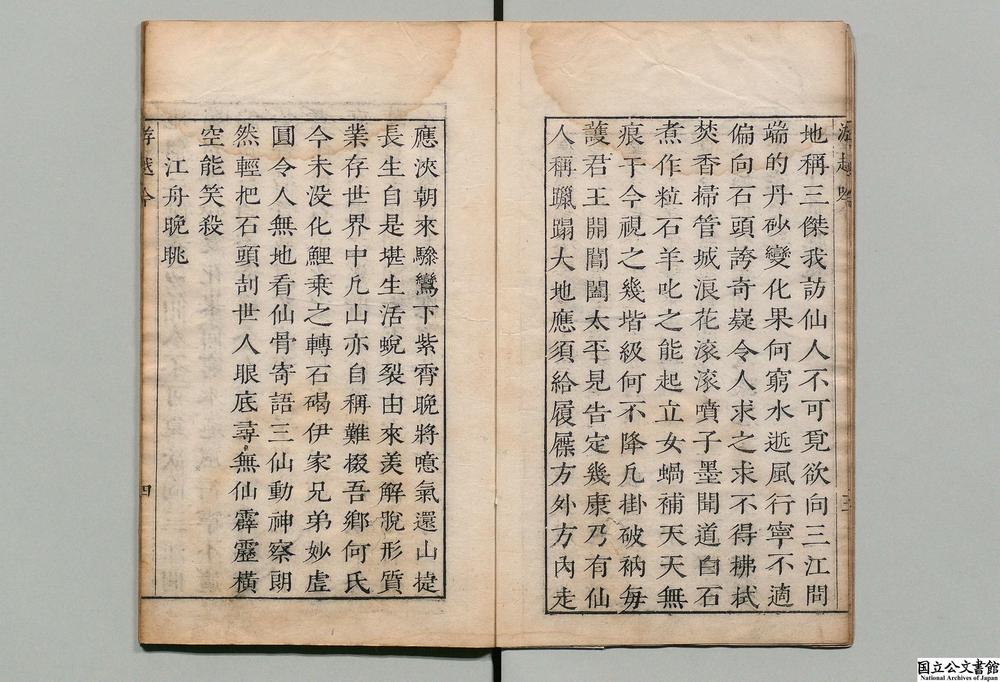 地稱三傑我訪仙人不可覓欲向三江問
端的丹砂變化果何窮水逝風行寧不適
偏向石頭誇奇嶷令人求之求不得拂拭
焚香掃管城浪花滚滚噴子墨聞道白石
煮作粒石羊叱之能起立女媧補天天無
痕于今視之幾堦級何不降凡掛破衲每
護君王開閶闔太平見告定幾康乃有仙
人稱躐蹋大地應須給履屧方外方內走
應浹朝來驂鸞下紫霄晩將噫氣還山捷
長生自是堪生活蛻裂由來羡解脫形質
業存世界中凢山亦自稱難棳吾鄉何氏
今未没化鯉乗之轉石碣伊家兄弟妙虚
圓令人無地看仙骨寄語三仙動神察朗
然輕把石頭刮世人眼底尋無仙霹靂橫
空能笑殺
江舟晩眺
游越吟
三
四
国立公文書館
National Archives of Japan